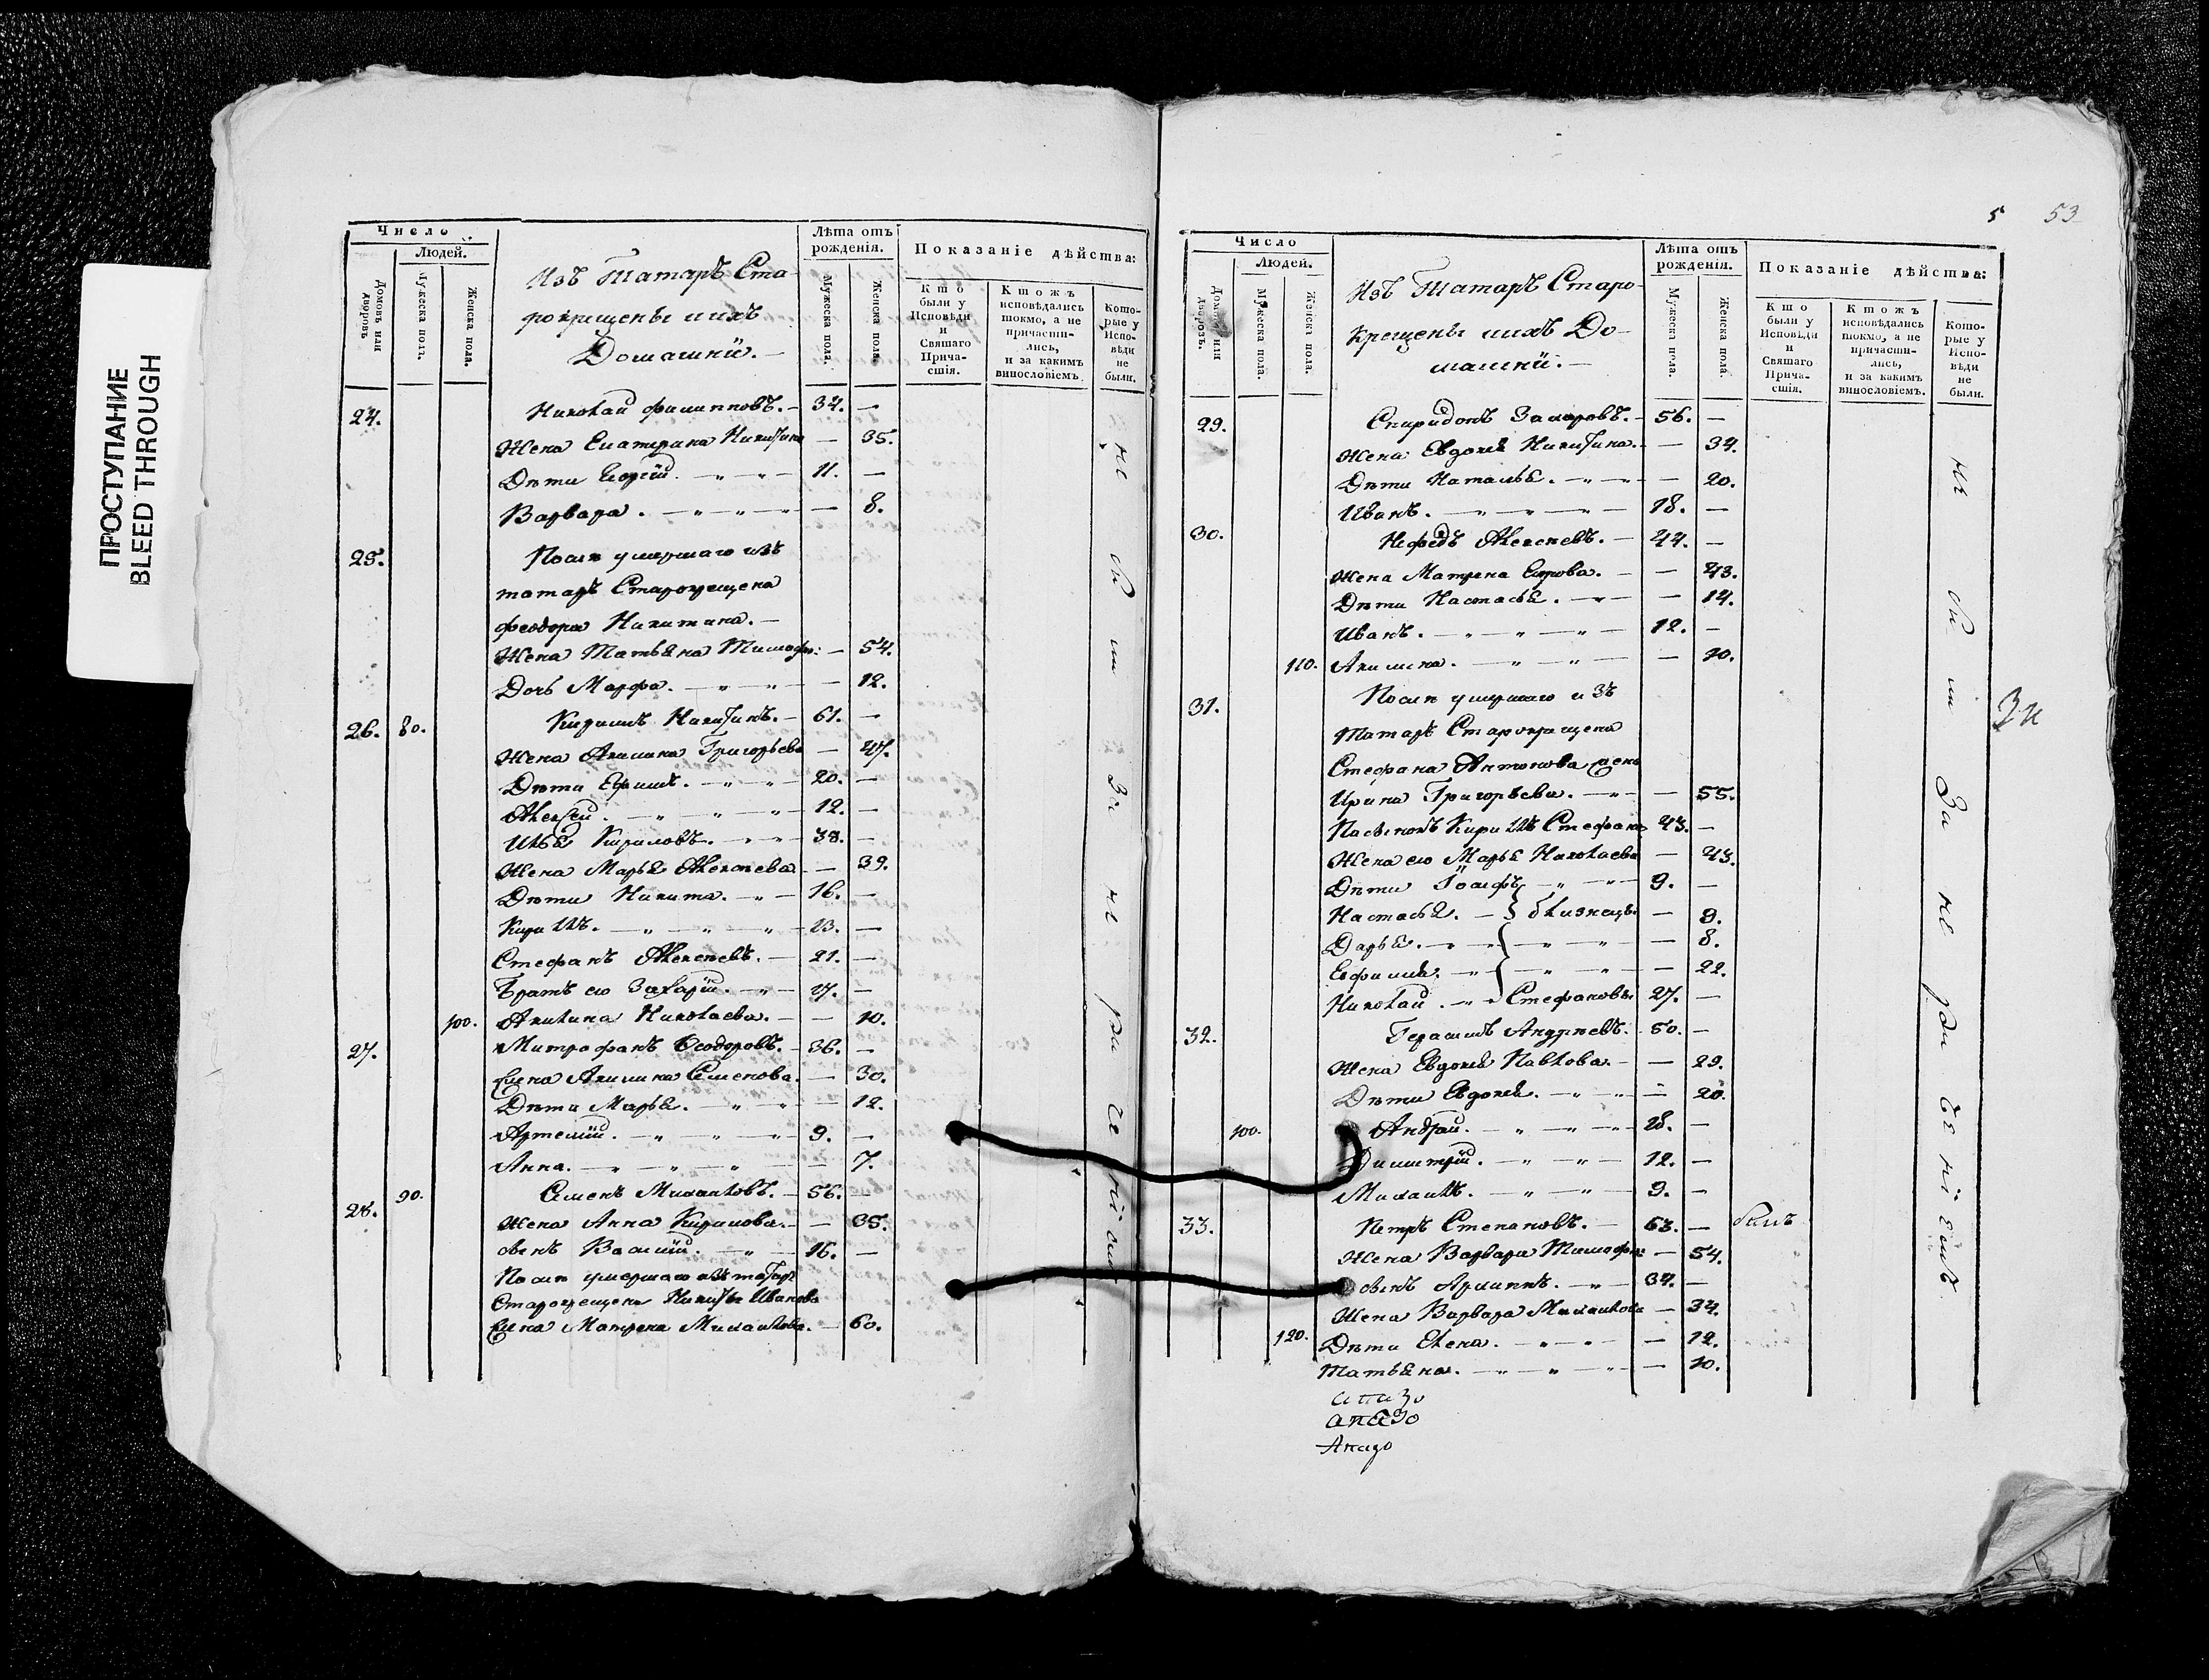 ПРОСТУПАНИЕ
BLEED THROUGH
5 53
Число
Людей.
Домовъ или дворовъ
Мужеска полъ.
Женска пола.
Изъ Татаръ Ста-
рокрещены ихъ
Домашнїи.
Лѣта отъ рожденїя.
Мужеска пола.
Женска пола.
Показанїе дѣйства:
Кто были у Исповѣди и Святаго Прича-стїя.
Ктожъ исповѣдались токмо, а не причасти-лись, и за какимъ винословіемъ
Кото-рые у Испо-вѣди не были.
24. Николай Филипповъ. 34. —
Жена Екатерина Никитина — 35.
Дѣти Георгїй. 11. —
Варвара. — 8.
25. Послѣ умершаго изъ
татаръ Старокрещена
Феодора Никитина.
Жена Татьяна Тимофе: — 54.
Дочь Марфа. — 12.
26. 80. Кирилъ Никитинъ. 61. —
Жена Акилина Григорьева — 47.
Дѣти Ефимъ. 20. —
Алексѣй. 12. —
Илья Кириловъ. 38. —
Жена Марья Алексѣева. — 39.
Дѣти Никита. 16. —
Кирилъ. 13. —
Стефанъ Алексѣевъ. 21. —
Братъ его Захарїй. 17. —
100. Акилина Николаева. — 10.
27. Митрофанъ Феодоровъ. 36. —
Жена Акилина Семенова. — 30.
Дѣти Марья. — 12.
Артемїй. 9. —
Анна. — 7.
28. 90. Семенъ Михайловъ. 56. —
Жена Анна Кирилова. — 35.
сынъ Василїй. 16. —
Послѣ умершаго изъ татаръ
Старокрещена Никиты Иванова
Жена Матрена Михайлова. — 60.
не бы ли За не ра че нї емъ
Число
Людей.
Домовъ или дворовъ.
Мужеска пола.
Женска пола.
Изъ Татаръ Старо-
крещены ихъ До-
машнїи.
Лѣта отъ рожденїя.
Мужеска пола.
Женска пола.
Показанїе дѣйства:
Кто были у Исповѣди и Святаго Прича-стїя.
Ктожъ исповѣдались токмо, а не причасти-лись, и за какимъ винословіемъ.
Кото-рые у Испо-вѣди не были.
29. Спиридонъ Захаровъ. 56. —
Жена Евдокія Никитина. — 34.
Дѣти Наталья. — 20.
Иванъ. 18. —
30. Нефедъ Алексѣевъ. 44. —
Жена Матрена Егорова. — 43.
Дѣти Настасья. — 14.
Иванъ. 12. —
110. Акилина. — 10.
31. Послѣ умершаго изъ
Татаръ Старокрещена
Стефана Антонова жена
Ирина Григорьева. — 55.
Пасынокъ Кирилъ Стефано 43. —
Жена его Марья Николаева — 43.
Дѣти Іосифъ 9. —
Настасья. близнецы. — 9.
Дарья. — 8.
Ефимья. — 22.
Николай. Стефановы 27. —
32. Герасимъ Андреевъ. 50. —
Жена Евдокія Павлова. — 29.
Дѣти Евдокія. — 20.
100. Андрей. 18. —
Димитрїй. 12. —
Михаилъ. 9. —
33. Петръ Степановъ. 63. — былъ
Жена Варвара Тимофе: — 54.
сынъ Архиппъ. 34. —
Жена Варвара Михайлова — 34.
120. Дѣти Елена. — 12.
Татьяна. — 10.
не бы ли За не ра че нї емъ.